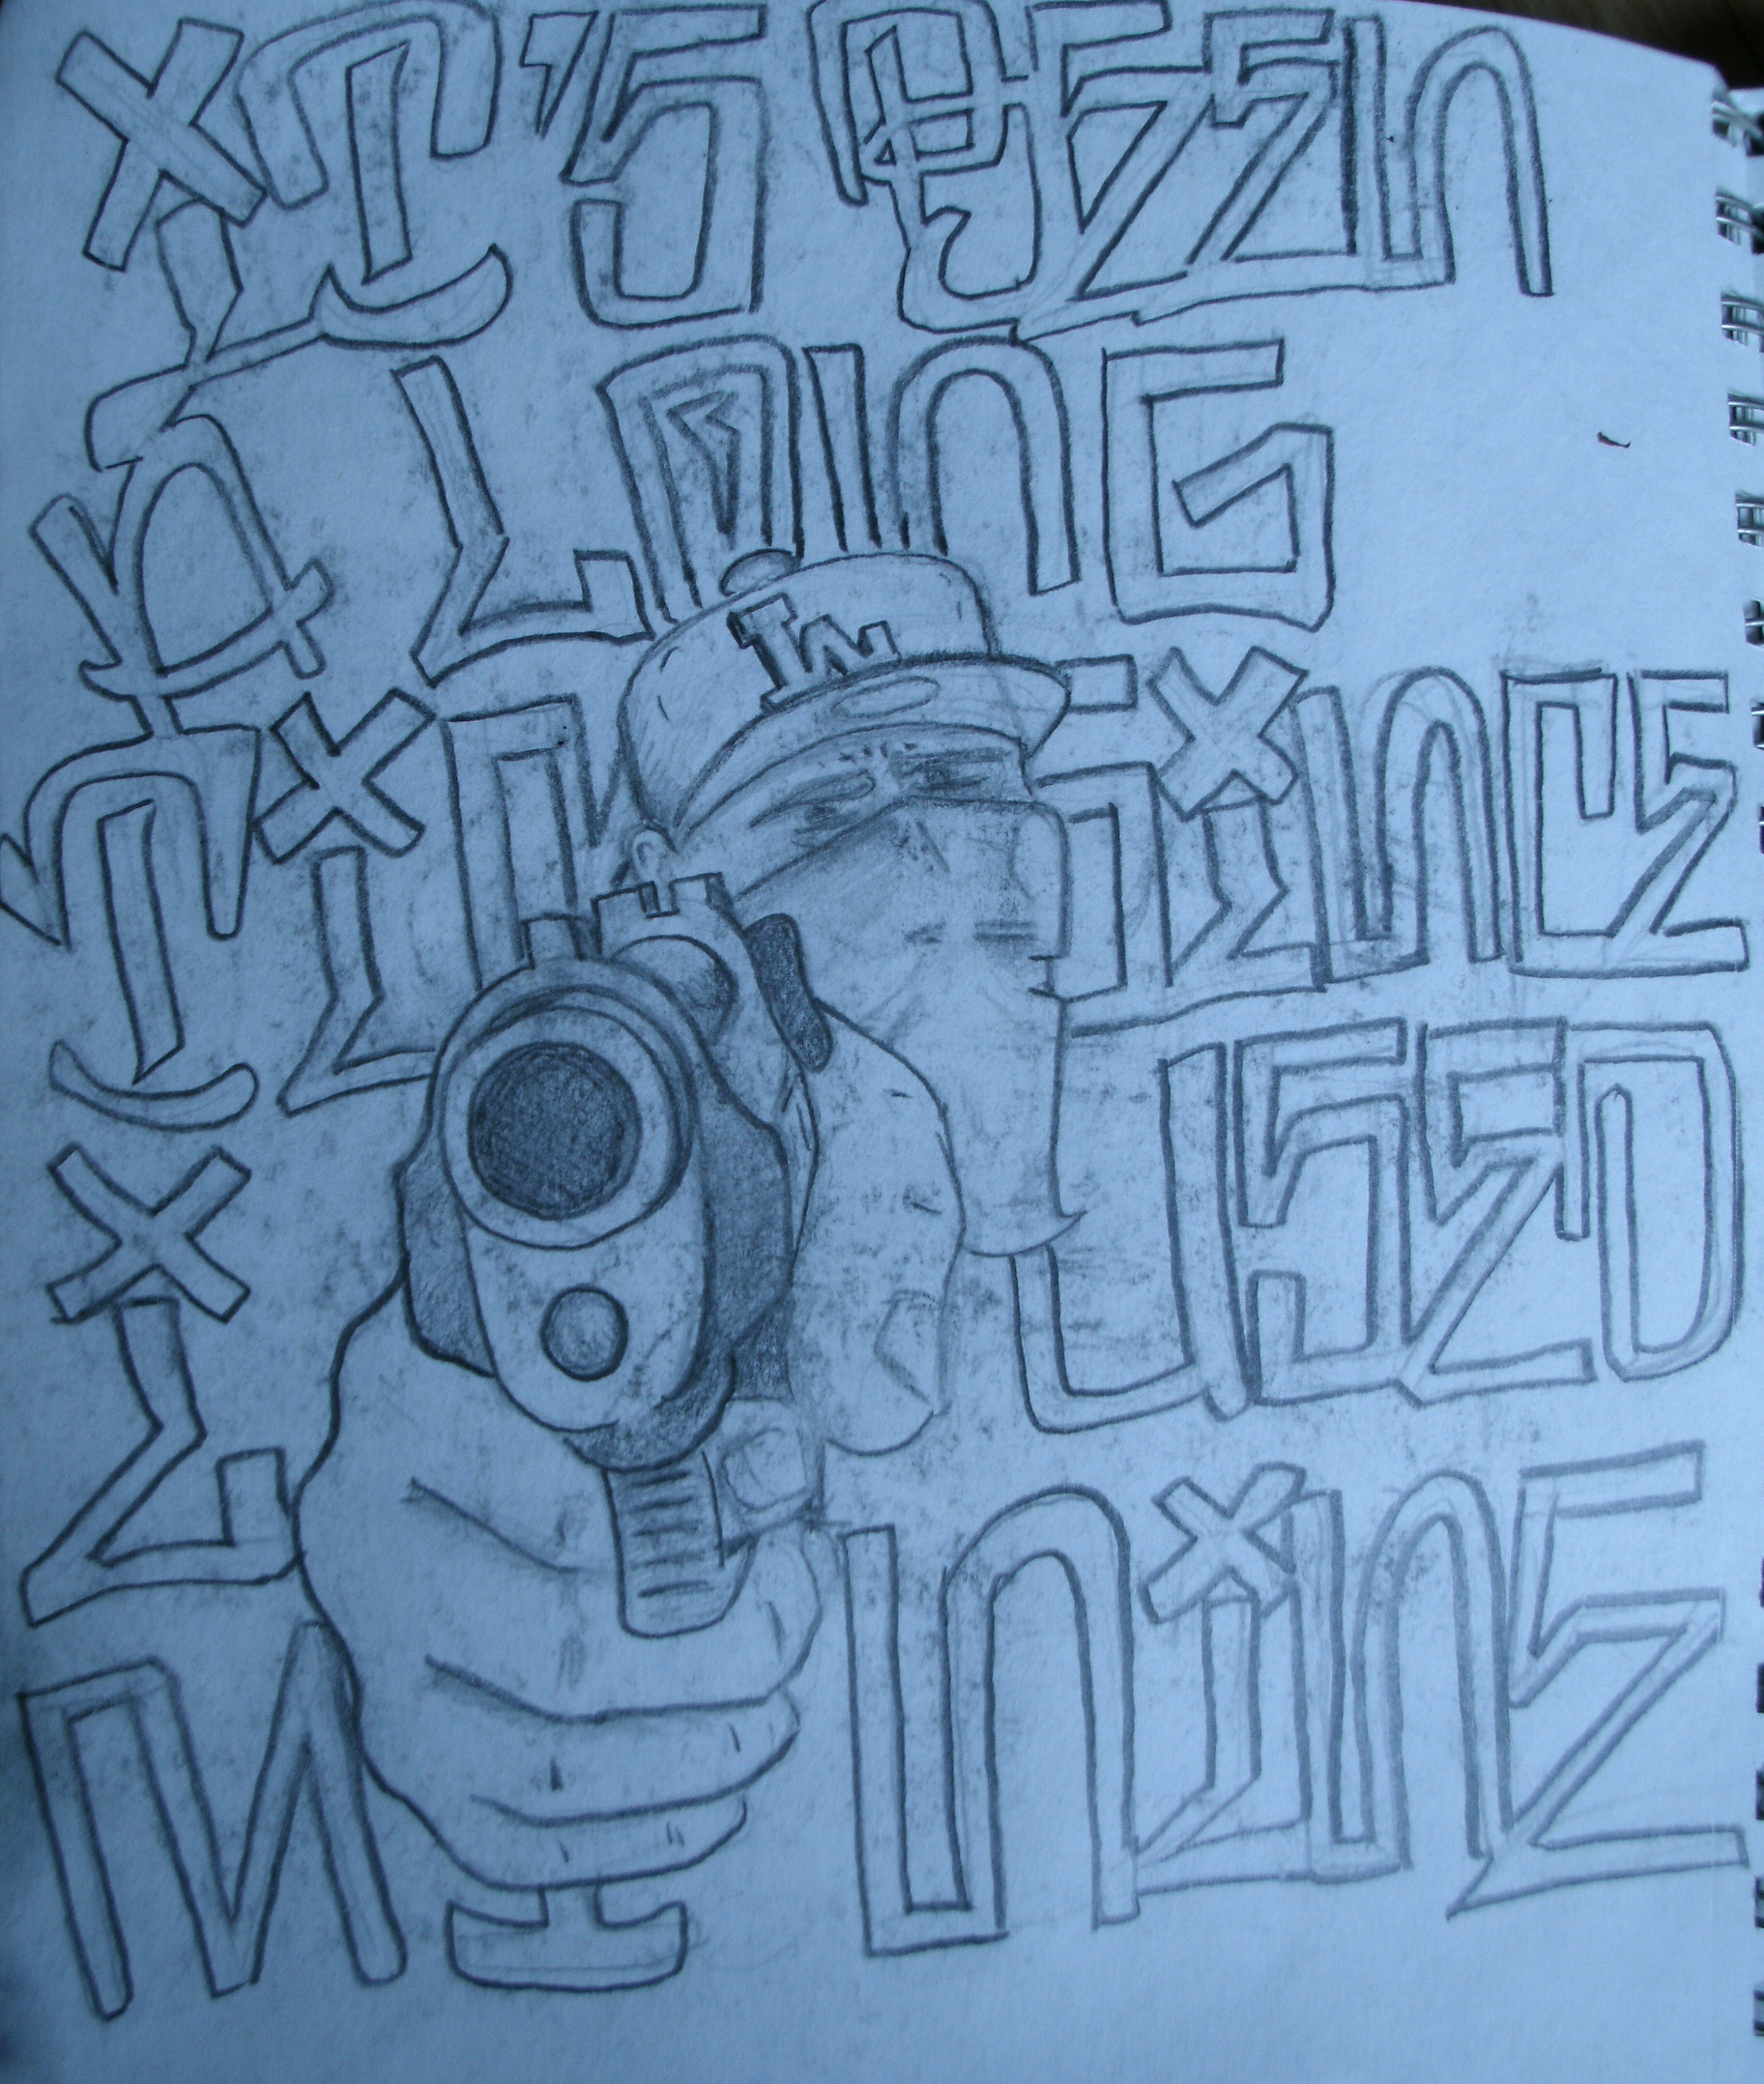 iT'S BEEN
A LONG
TiM SiNCE
i USED
M NiNE